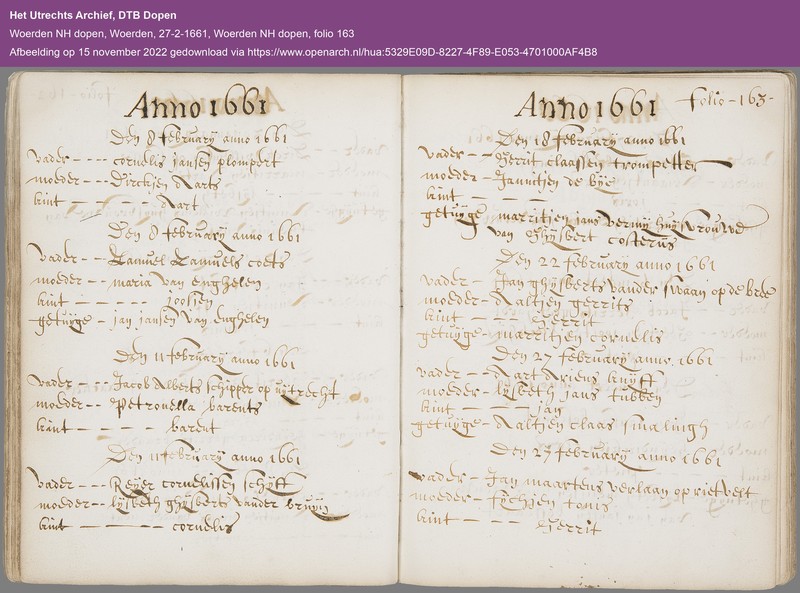 Het Utrechts Archief, DTB Dopen
Woerden NH dopen, Woerden, 27-2-1661, Woerden NH dopen, folio 163
Afbeelding op 15 november 2022 gedownload via https://www.openarch.nl/hua:5329E09D-8227-4F89-E053-4701000AF4B8
Anno 1661
Den 8 february anno 1661
vader - - - - cornelis jansen plompert
moeder - - Dirckjen Aarts
kint - - - - - Aart
Den 8 february anno 1661
vader - - Samuel Samuels coets
moeder - - maria van enghelen
kint - - - - - joosjen
getuijge - jan jansen van Enghelen
Den 11 february anno 1661
vader - - - Jacob Alberts schipper op uijtrecht
moeder - - Petronella barents
kint - - - - - barent
Den 11 february anno 1661
vader - - - Reijer cornelissen schijff
moeder - - lijsbeth ghijsberts vander bruijn
kint - - - - - cornelis
Anno 1661 folio - 163 -
Den 18 february anno 1661
vader - - Gerrit claassen trompetter
moeder - Jannitjen de bije
kint - - - -
getuijge - marritjen jans huijsvrouwe
van Ghijsbert costerus
Den 22 february anno 1661
vader - Jan ghijsberts vander swaan op de bree
moeder - Aaltjen gerrits
kint - - - Gerrit
getuijge - marritjen cornelis
Den 27 february anno 1661
vader - - Aart Ariens knijff
moeder - lijsbeth jans tubben
kint - - - - jan
getuijge - Aaltjen claas smalingh
Den 27 february anno 1661
vader - - Jan maartens verlaan op rietvelt
moeder - fijchjen tonis
kint - - - - Gerrit